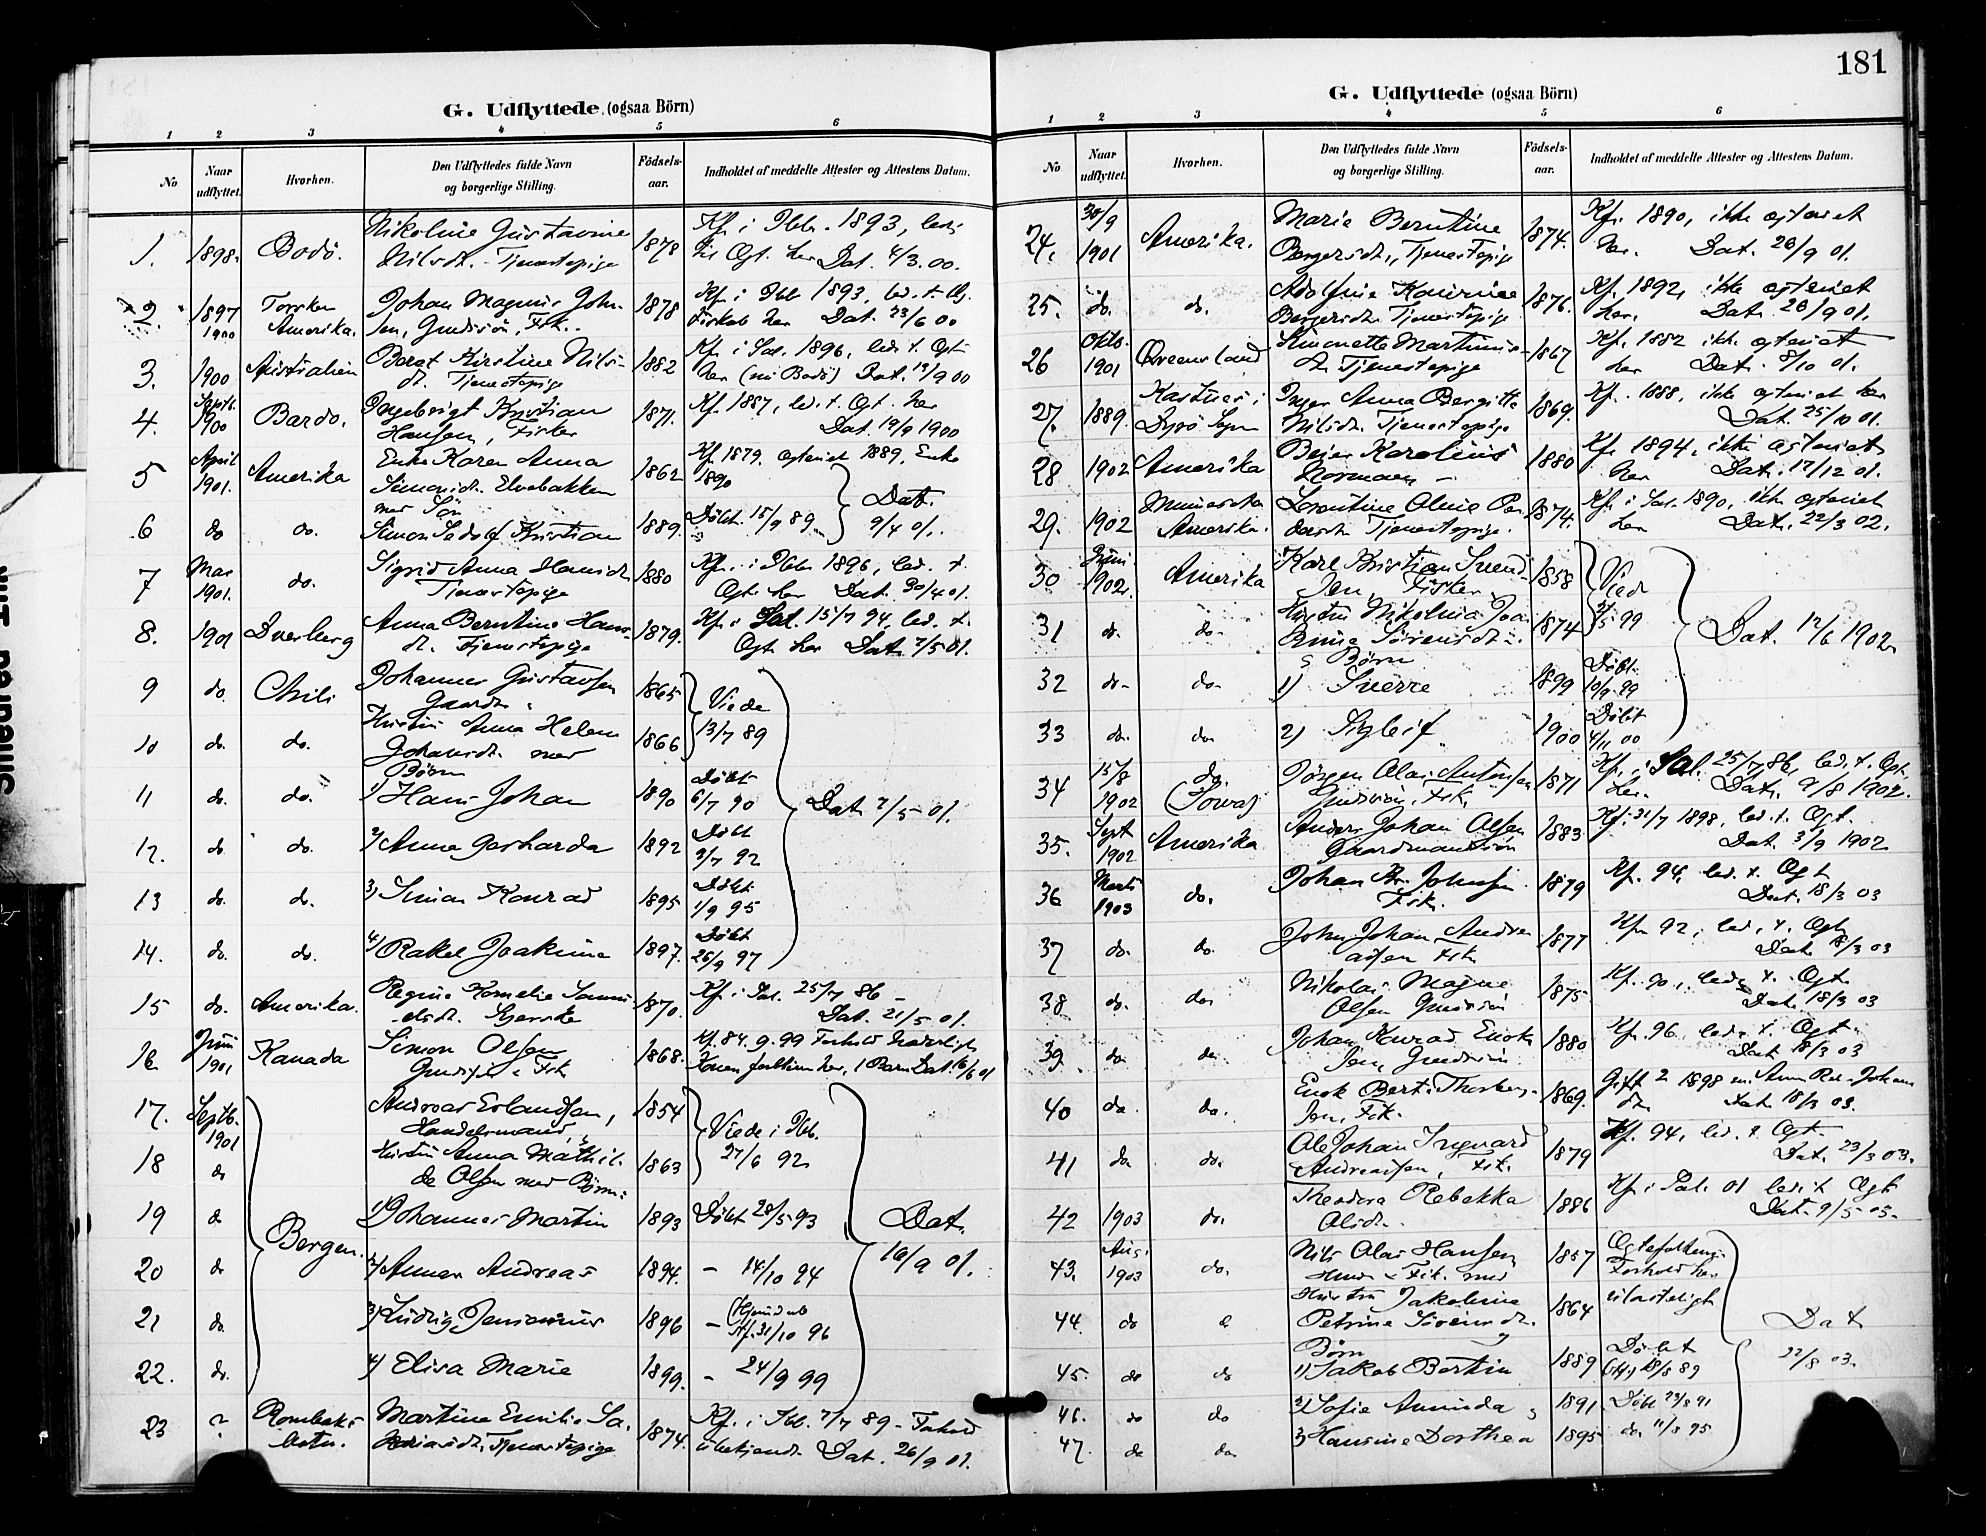 181
G. Udflyttede (ogsaa Börn)
1 2 3 4 5 6
No
Naar udflyttet.
Hvorhen.
Den Udflyttedes fulde Navn og borgerlige Stilling.
Födsels-aar.
Indholdet af meddelte Attester og Attestens Datum.
1. 1898. Bodö. Nikoline Gustavine 1878 Kf. i Ibb. 1893, ledi
Nilsdt. Tjenestepige til Ægt. her Dat. 4/3.00.
2 1897 Torsken Johan Magnus John- 1878 Kf. i Ibb 1893, led. t.
1900 Amerika. sen, Gaardsön, Fisk. her Dat. 23/6 00
3. 1900 Australien Berget Kirstine Nils- 1882 Kf. i Sal. 1896, led. t. Ægt
dt. Tjenestepige her (nu Bodö) Dat. 19/9 00
4. Septb. 1900 Bardo. Ingebrigt Kristian 1871. Kf. 1887, led. t. Ægt. her
Hansen, Fisker Dat. 19/9 1900
5 April 1901. Amerika Enke Karen Anna 1862 Kf. 1879, ægteviet 1889, Enke
Simonsdt. Elvebakken 1890
med Sön
6 do do. Simon Sedolf Kristian 1889. Döbt. 15/9 89. Dat. 9/4 01.
7 Mai 1901. do. Sigrid Anna Hansdt. 1880 Kf. i Ibb 1896, led. t.
Tjenestepige Ægt. her Dat. 30/4 01.
8. 1901 Dverberg Anna Berntine Hans- 1879. Kf. i Sal. 15/7 94, led. t.
dt. Tjenestepige Ægt her Dat. 7/5 01.
9 do Chili Johannes Gustavsen 1865 Viede
10 do. do. Hustru Anna Helene 1866 13/7 89
Johansdt. med
Börn
11 do. do. 1) Hans Johan 1890 Döbt 6/7 90 Dat. 7/5 01.
12. do. do. 2) Anna Gerharda 1892 Döbt 3/7 92
13 do. do. 3) Simon Konrad 1895 Döbt 1/9 95
14. do. do. 4) Rakel Joakime 1897. Döbt 26/9 97
15 do. Amerika. Regine Kornelie Samu- 1870. Kf. i Sal. 25/7 86 -
elsdt. Dat. 21/5 01.
16 Juni 1901 Kanada Simon Olsen 1868. Kf. 84. g. 99 Forhold
Fisk Konen her, 1 Barn Dat. 16/6 01
17. Septb. 1901 Bergen. Andreas Erlandsen, 1854 Viede i Ibb.
Handelsmand,
18 do Hustru Anna Mathil- 1863 27/6 92
de Olsen med Börn:
19 do 1) Johannes Martin 1893 Döbt 28/5 93 Dat.
20 do 2) Andreas 1894. - 14/10 94 16/9 01.
21 do. 3) Ludvig 1896 - Hjemdöb. Stf. 31/10 96
22. do. 4) Elisa Marie 1899. - 24/9 99
23 ? Rombaks- Martine Emilie Za- 1874. Kf. i Ibb. 7/7 89 - Forhold
botn. kariasdt. Tjenestepige ubekjendt Dat. 26/9 01.
G. Udflyttede (ogsaa Börn)
1 2 3 4 5 6
No
Naar udflyttet.
Hvorhen.
Den Udflyttedes fulde Navn og borgerlige Stilling.
Födsels-aar.
Indholdet af meddelte Attester og Attestens Datum.
24. 30/9 1901 Amerika. Marie Berntine 1874. Kf. 1890, ikke ægteviet
Bergersdt., Tjenestepige her. Dat. 26/9 01.
25. do. do. Adolfine Kaurine 1876. Kf. 1892, ikke ægteviet
Bergersdt. Tjenestepige her. Dat. 26/9 01.
26 Oktb. 1901 Qveensland Simonette Martinus- 1867 Kf. 1882 ikke ægteviet
dt. Tjenestepige her Dat. 8/10 01.
27. 1889. Kastnes i Inger Anna Bergitte 1869. Kf. 1888, ikke ægteviet her
Dyrö Sogn Nilsdt. Tjenestepige Dat. 25/10 01.
28 1902 Amerika Beier Karelius 1880 Kf. 1894, ikke ægteviet
Normann - her Dat. 17/12 01.
29. 1902 Minnesota Lorentine Oline Pe- 1874. Kf. i Sal. 1890, ikke ægteviet
Amerika. dersdt. Tjenestepige. her Dat. 22/3 02.
30 Juni 1902. Amerika Karl Kristian Svend- 1858 Viede
sen, Fisker
31 do. do. Hustru Nikolina Joa- 1874 5 99 Dat. 12/6 1902
kime Sörensdt.
& Börn
32 do. do. 1) Sverre 1899 Döbt. 10/9 99
33 do. do. 2) Sigleif 1900 Döbt 4/11 00
34 15/8 1902 do. (Iowa) Jörgen Olai Antonsen 1871 Kf. i Sal. 25/7 86, led. t. Ægt.
Gaardsön, Fisk. her. Dat. 9/8 1902.
35. Sept 1902 Amerika Anders Johan Olsen 1883 Kf. 31/7 1898, led. t. Ægt.
Gaardmandssön Dat. 3/9 1902
36 Marts 1903 do. Johan Johnsen 1879 Kf. 94, led. t. Ægt
Fisk. Dat. 18/3 03
37 do. do. John Johan Andre- 1877 Kf. 92, led. t. Ægt
assen Fisk Dat. 18/3 03
38 do. do. Nikolai Magne 1875 Kf. 90, led. t. Ægt
Olsen Gaardsön Dat. 18/3 03
39 do. do. Johan Konrad Enok- 1880 Kf. 96 led. t. Ægt.
sen, Gaardssön Dat. 18/3 03
40 do. do. Enok Bert. Thorberg- 1869. Gift 2 1898 m. Anna Johans
sen, Fisk. dt. Dat. 18/3 03.
41 do do. Ole Johan Ingvard 1879 Kf. 94, led. t. Ægt
Andreassen, Fisk. Dat. 23/3 03.
42 1903 do. Theodora Rebekka 1886 Kf. i Sal. 01 led. t. Ægt
Olsdt. Dat. 9/5 03.
43. Aug. 1903 do. Nils Olai Hansen 1857 Ægtefolkenes
Fisk. med Forhold her
44. do do Hustru Jakobine 1864 ulasteligt Dat
Petrine Sörensdt. og 22/8 03.
Börn
45. do do 1) Jakob Bertin 1889 Döbt 18/8 89
46. do do 2) Sofie Aminda 1891 Döbt 23/8 91
47. do do 3) Hansine Dorthea 1895 do. 11/8 95